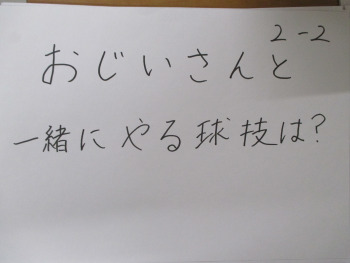 2-2
おじいさんと
一緒にやる球技は?